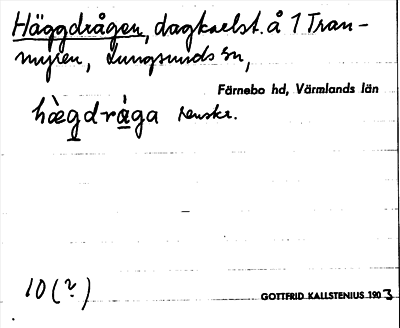 Häggdrågen, dagkarlst. å 1 Tran-
myren, Lungsunds sn,
Färnebo hd, Värmlands län
hæ̀gdråga renskr.
10 (?)
GOTTFRID KALLSTENIUS 1903